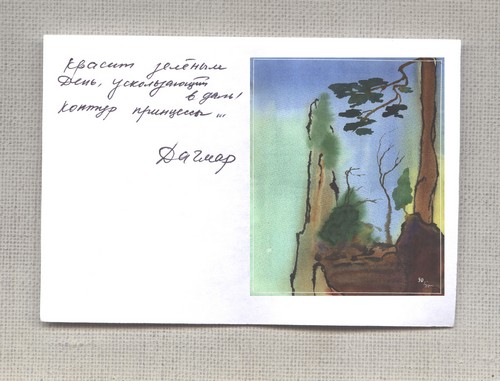 Красит зелёным
День, ускользающий
в даль!
Контур принцессы...
Дагмар